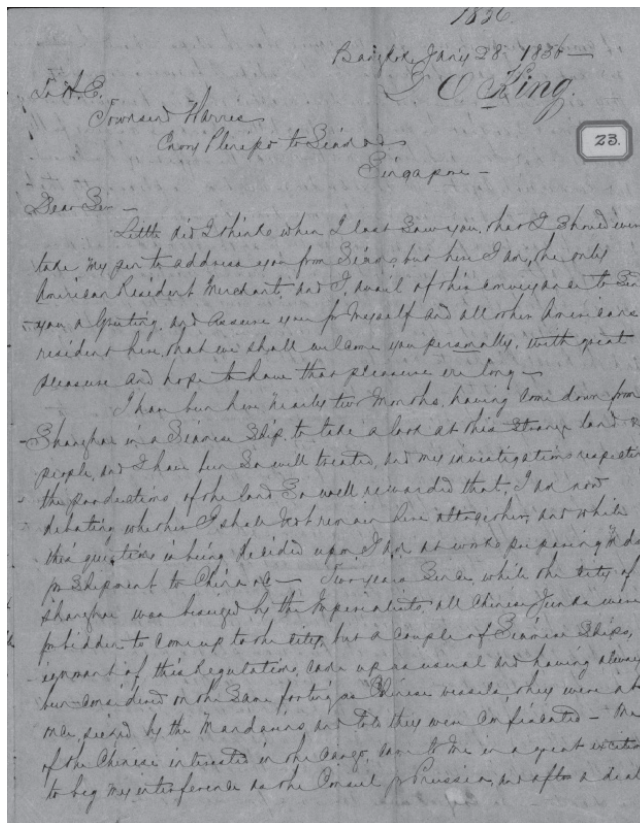 1856.
Bangkok Jany 28. 1856—
J O King.
To H. E.
Townsend Harris
Envoy Plenipo to Siam &c
23.
Singapore—
Dear Sir—
Little did I think when I last saw you, that I should ever
take my pen to address you from Siam, but here I am, the only
American Resident Merchant, and I avail of this conveyance to Sen
you a Greeting, and assure you for myself and all other Americans
resident here, that we shall welcome you personally, with great
pleasure and hope to have that pleasure ere long—
I have been here nearly two months, having come down from
Shanghai in a Siamese Ship, to take a look at this strange land &
people, and I have been so well treated, and my investigations respectin
the productions of the land so well rewarded that, I am now
debating whether I shall not remain here altogether, and while
this question is being decided upon, I am at work preparing
for shipment to China &c— Two years since, while the City of
Shanghai was besieged by the Imperialists, all Chinese Junks were
forbidden to come up to the city, but a couple of Siamese Ships,
ignorant of this Regulation, came up as usual and having always
been considered on the same footing as Chinese vessels, they were at
once seized by the Mandarins, and told they were confiscated—
of the Chinese interested in the cargo, came to me in a great excite
to beg my interference as the Consul for Prussia, and after a deal